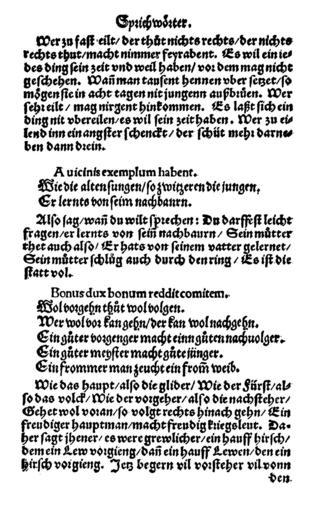 Sprichwörter.
Wer zu fast eilt/ der thůt nichts rechts/ der nichts
rechts thut/ macht nimmer feyrabent. Es wil ein ie-
des ding sein zeit vnd weil haben/ vor dem mag nicht
geschehen. Wañ man tausent hennen vber setzet/ so
mögen sie in acht tagen nit jungenn außbrüen. Wer
sehr eilt/ mag nirgent hinkommen. Es laßt sich ein
ding nit vbereilen/ es wil sein zeit haben. Wer zu ei-
lend inn ein angster schenckt/ der schüt mehr darne-
ben dann drein.
A uicinis exemplum habent.
Wie die alten sungen/ so zwitzeren die jungen,
Er lernts von seim nachbaurn.
Also sag/ wañ du wilt sprechen: Du darffest leicht
fragen/ er lernts von seiñ nachbaurn/ Sein můtter
thet auch also/ Er hats von seinem vatter gelernet/
Sein můtter schlůg auch durch den ring/ Es ist die
statt vol.
Bonus dux bonum reddit comitem.
Wol vorgehn thůt wol volgen.
Wer wol vor kan gehn/ der kan wol nachgehn.
Ein gůter vorgenger macht einn gůten nachuolger.
Ein gůter meyster macht gůte jünger.
Ein frommer man zeucht ein from̃ weib.
Wie das haupt/ also die glider/ Wie der Fürst/ al-
so das volck/ Wie der vorgeher/ also die nachsteher/
Gehet wol voran/ so volgt rechts hinach gehn/ Ein
freudiger hauptman/ macht freudig kriegsleut. Da-
her sagt jhener/ es were grewlicher/ ein hauff hirsch/
dem ein Lew vorgieng/ dañ ein hauff Lewen/ den ein
hirsch vorgieng. Jetz begern vil vorsteher vil vonn
den.